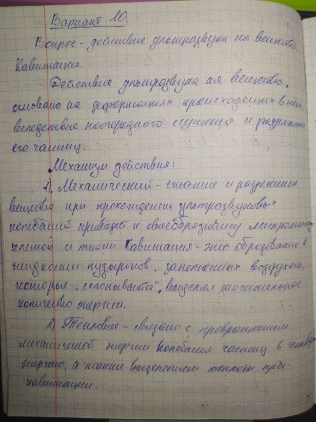 Вариант 10.
Вопрос - действие ультразвука на вещество.
Кавитация
Действие ультразвука на вещество,
основано на деформациях, происходящих в нём
вследствие поочередного сгущения и разрежения
его частиц.
Механизм действия:
1. Механический - сжатие и разрежение
вещества при прохождении ультразвуковых
колебаний приводит к своеобразному микромассажу
клеток и ткани Кавитация - это образование в
жидкости пузырьков, заполненных воздухом,
которые "схлопываются", выделяя значительное
количество энергии.
2) Тепловое - связано с превращением
механической энергии колебания частиц в тепловую
энергию, а также выделением теплоты при
кавитации.